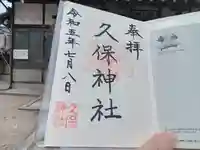 奉拝
久保神社
令和五年七月八日